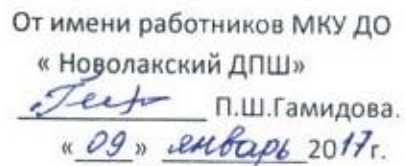 От имени работников МКУ ДО
« Новолакский ДПШ»
П.Ш.Гамидова.
« 09 » январь 2017г.